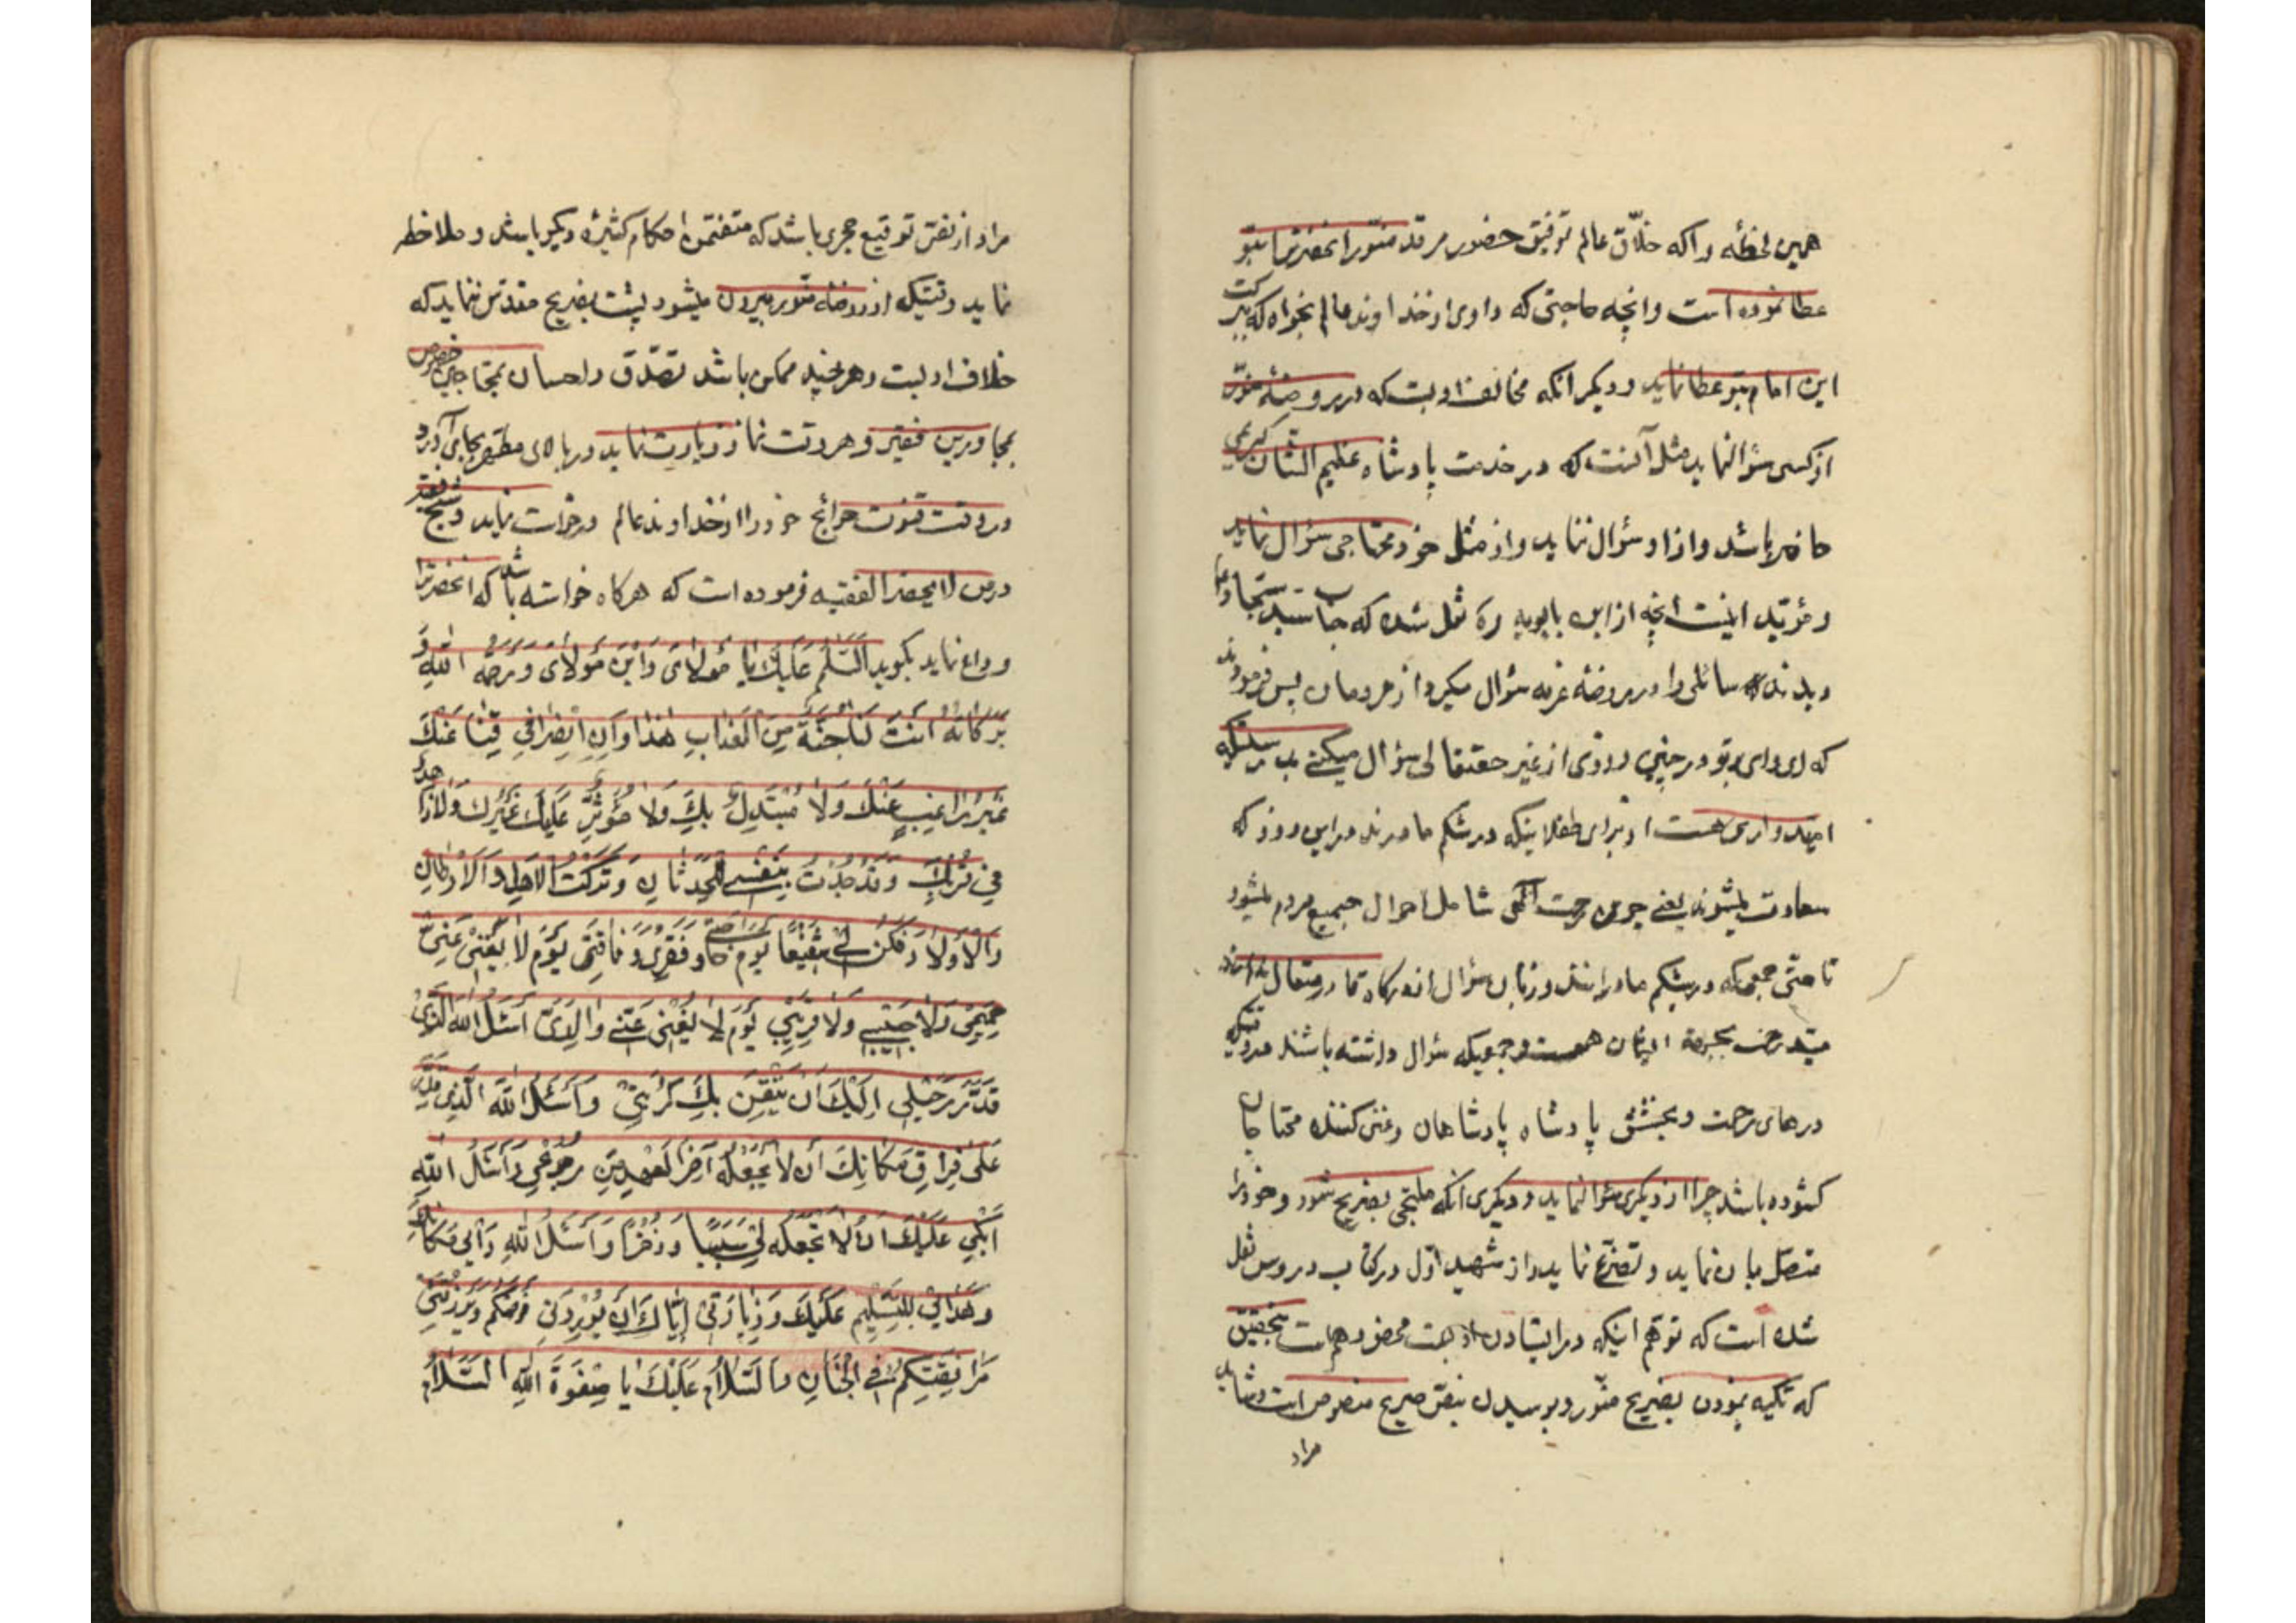 همین لحظه را که خلاق عالم توفیق حضور مرقد منور انحضرترا بتو
عطا نموده است وانچه حاجتی که داوی از خداوند عالم بخواه که ببرکت
این امام بتو عطا نماید و دیکر انکه مخالف ادبست که در روضهٔ منور
از کسی سؤال نماید مثل آنست که در خدمت پادشاه عظیم الشان کریمی
حاضر باشد و از او سؤال ننماید و از مثل خود محتاجی سؤال نماید
و مؤید اینست انچه از ابن بابویه ره نقل شده که جناب سید سجاد
دیدند سائلی را در روضه عرفه سؤال میکرد از مردمان پس فرمودند
که ای وای بر تو در چنین روزی از غیر حقتعالی سؤال میکنی بدرستیکه
امیدواری هست از برای طفلانیکه در شکم مادرند در این روز که
سعادت میشوند یعنی چون رحمت آلهی شامل احوال جمیع مردم میشود
تا حتی جمعی که در شکم مادرانند و زبان سؤال از درکاه قادر متعال ندارند
هست و جمعیکه سؤال داشته باشند
درهای رحمت و بخشش پادشاه پادشاهان و غنی کننده محتاجان
کشوده باشد چرا از دیکری سؤال نماید و دیکری انکه ملتجی بضریح شود و خود را
متصل بان نماید و تضرع نماید و از شهید اول در کتاب دروس نقل
شده است که توهم اینکه در ایستادن از جهت تحقیق
که تکیه نمودن بضریح منور و بوسیدن بنص صریح منصوص است و شاید
مراد
مراد از نص توقیع حجری باشد که متضمن احکام کثیرهٔ دیکر باشد و ملاحظه
نماید وقتیکه از روضه منور بیرون میشود پشت بضریح مقدس ننماید که
خلاف ادبست و هر چند ممکن باشد تصدق و احسان بمحتاجین خصوص
بمجاورین فقیر و هر وقت نماز زیارت نماید در بالای سر مطهر بجای آورد
در وقت قنوت حوائج خود را از خداوند عالم درخواست نماید و شیخ
در من لا یحضر الفقیه فرموده است که هرکاه خواسته باشد که انحضرترا
وداع نماید بکوید السَّلٰمُ عَلَیْكَ یا مَوْلایَ وَابْنَ مَوْلایَ وَرَحْمَةُ اللهِ وَ
بَرَكاتُهُ اَنْتَ لَنا جُنَّةٌ مِنَ الْعَذابِ هٰذا وَآنُ انْصِرافی عَنْكَ
غَیْرَ راغِبٍ عَنْكَ وَلا مُسْتَبْدِلٍ بِكَ وَلا مُؤْثِرٍ عَلَیْكَ غَیْرَكَ وَلا زاهِدٍ
فی قُرْبِكَ وَقَدْ جُدْتُ بِنَفْسی لِلْحَدَثانِ وَتَرَكْتُ الْاَهْلَ وَالْاَوْطانَ
وَالْاَوْلادَ فَكُنْ لی شَفیعًا یَوْمَ حاجَتی وَفَقْری وَفاقَتی یَوْمَ لا یُغْنی عَنّی
حَمیمی وَلا حَبیبی وَلا قَریبی یَوْمَ لا یُغْنی عَنّی والِدَیَّ اَسْئَلُ اللهَ الَّذی
قَدَّرَ رَحیلی اِلَیْكَ اَنْ یُنَفِّسَ بِكَ كُرْبَتی وَاَسْئَلُ اللهَ الَّذی قَدَّرَ
عَلَیَّ فِراقَ مَكانِكَ اَنْ لا یَجْعَلَهُ آخِرَ الْعَهْدِ مِنْ رُجُوعی وَاَسْئَلُ اللهَ
اَبْكی عَلَیْكَ اَنْ لا یَجْعَلَهُ لی سَبَبًا وَذُخْرًا وَاَسْئَلُ اللهَ مَكانَكَ
وَهَدانی لِلتَّسْلیمِ عَلَیْكَ وَزِیارَتی اِیّاكَ اَنْ یُورِدَنی حَوْضَكُمْ وَیَرْزُقَنی
مُرافَقَتَكُمْ فِی الْجِنانِ وَالسَّلامُ عَلَیْكَ یا صَفْوَةَ اللهِ السَّلامُ